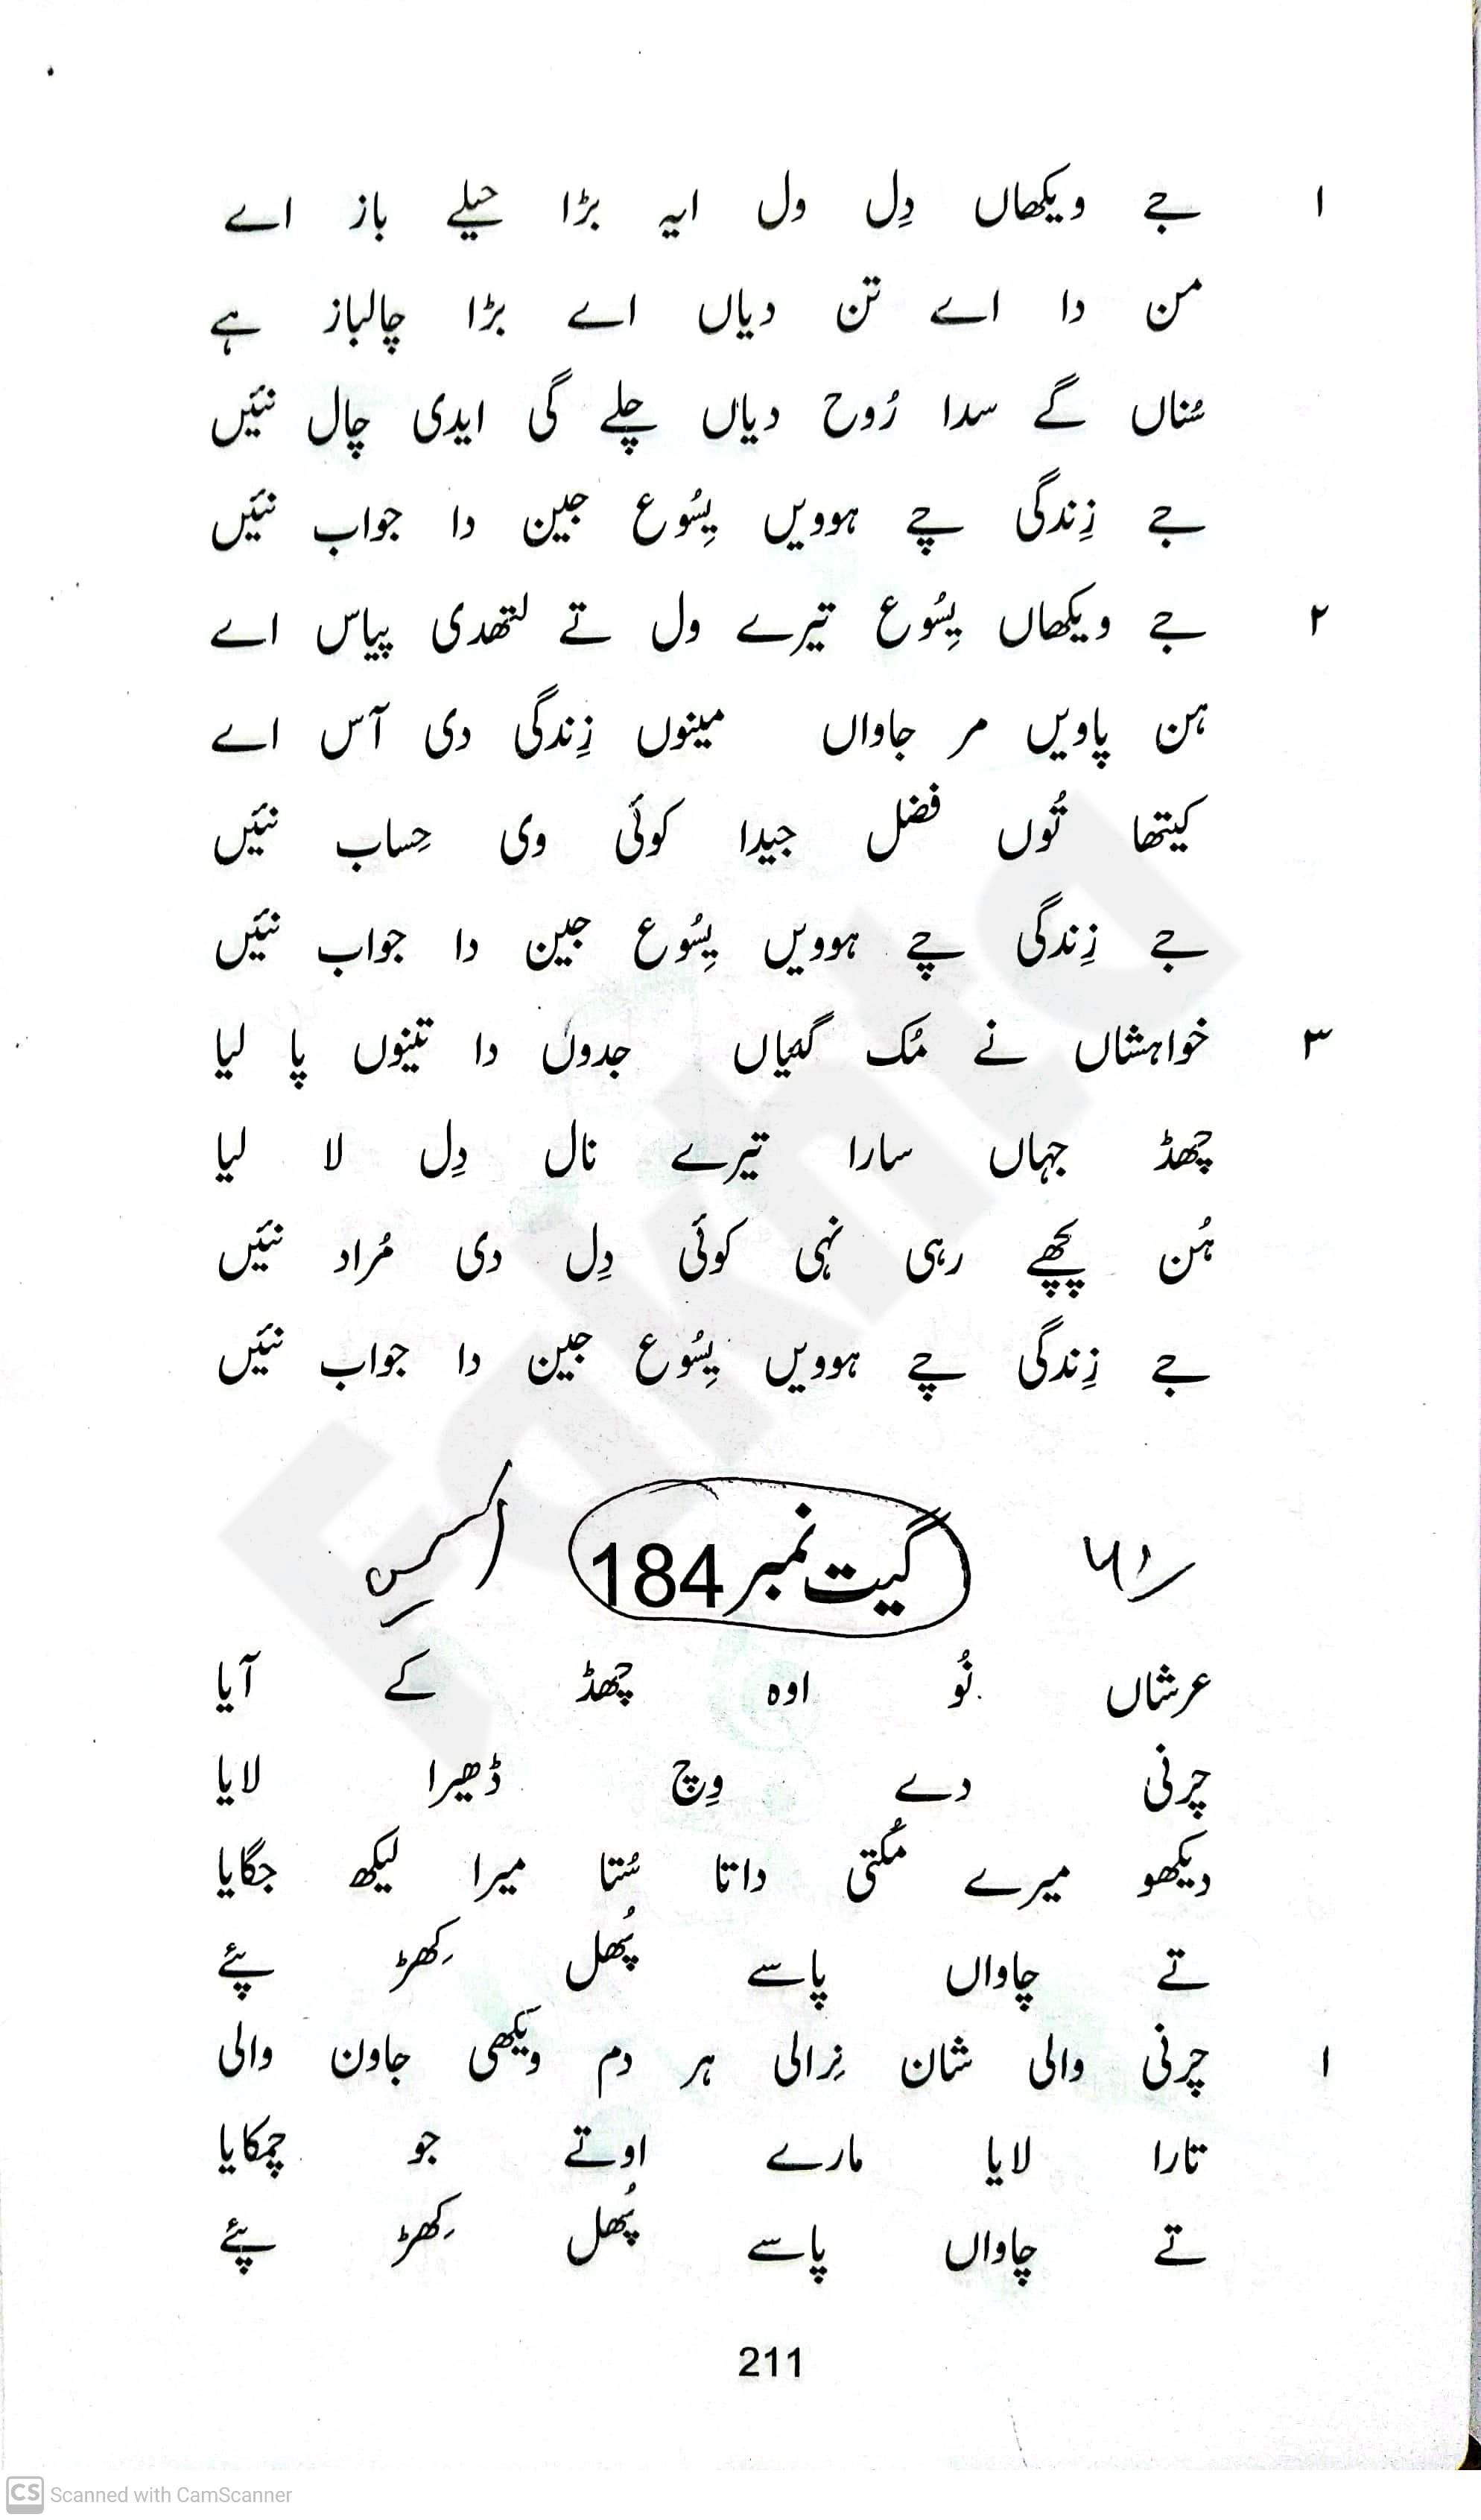 ۱ جے ویکھاں دِل ول ایہ بڑا حیلے باز اے
من دا اے تن دیاں اے بڑا چالباز ہے
سُناں گے سدا رُوح دیاں چلے گی ایدی چال نئیں
جے زِندگی چے ہوویں یِسُوع جین دا جواب نئیں
۲ جے ویکھاں یِسُوع تیرے ول تے لتھدی پیاس اے
ہن پاویں مر جاواں مینوں زِندگی دی آس اے
کیتھا تُوں فضل جیدا کوئی وی حِساب نئیں
جے زِندگی چے ہوویں یِسُوع جین دا جواب نئیں
۳ خواہشاں نے مُک گئیاں جدوں دا تینوں پا لیا
چھڈ جہاں سارا تیرے نال دِل لا لیا
ہُن پچھے رہی نہی کوئی دِل دی مُراد نئیں
جے زِندگی چے ہوویں یِسُوع جین دا جواب نئیں
گیت نمبر 184
عرشاں نُو اوہ چھڈ کے آیا
چرنی دے وِچ ڈھیرا لایا
دیکھو میرے مُکتی داتا سُتا میرا لیکھ جگایا
تے چاواں پاسے پُھل کِھڑ پئے
۱ چرنی والی شان نِرالی ہر دم ویکھی جاون والی
تارا لایا مارے اوتے جو چمکایا
تے چاواں پاسے پُھل کِھڑ پئے
211
Fakhta
CS Scanned with CamScanner